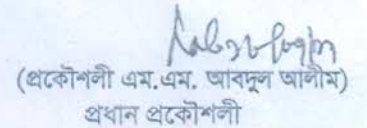 (প্রকৌশলী এম.এম. আবদুল আলীম)
প্রধান প্রকৌশলী